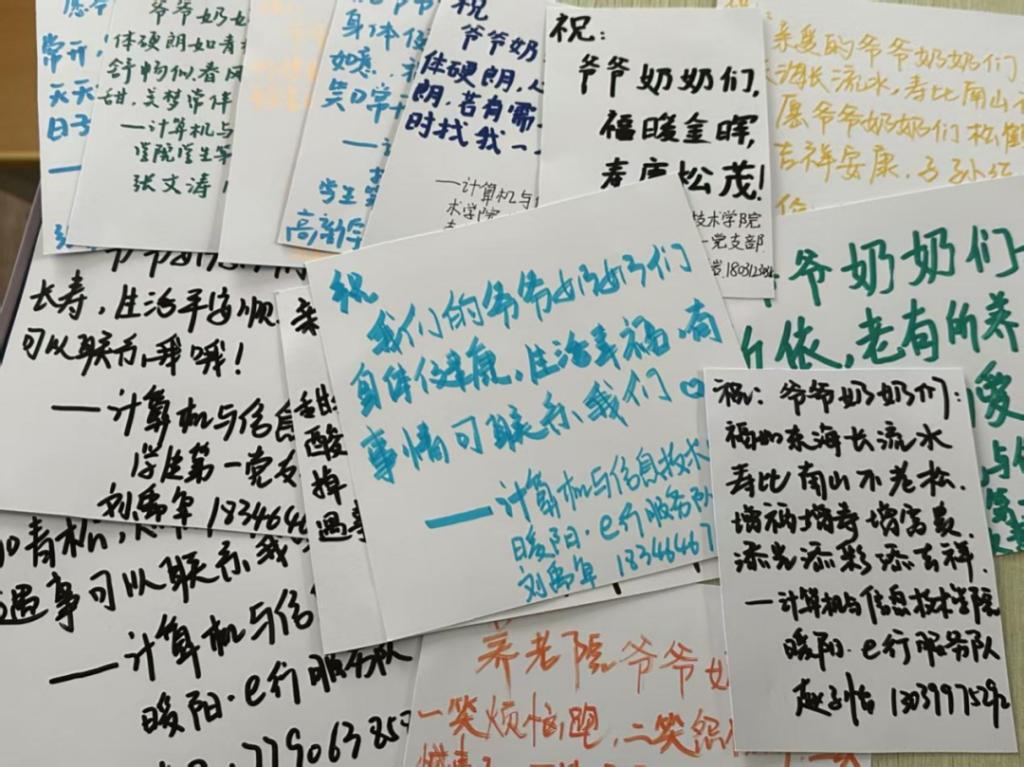 爷爷奶
体硬朗如青
舒畅似春风
甜,美梦常伴
—计算机与
学院学生第
张文涛
常开
天天
日子
身体健
如意
笑口常
学生第
高新宇
祝
爷爷奶
体硬朗,心
朗,若有需
时找我—
—计算机与
术学院
祝:
爷爷奶奶们,
福暖金晖,
寿康松茂!
技术学院
一党支部
亲爱的爷爷奶奶们
海长流水,寿比南山
愿爷爷奶奶们松鹤
吉祥安康,子孙
长寿,生活平安顺
可以联系我哦!
—计算机与信息
学生第一党支
刘禹年 1834646
祝
我们的爷爷奶奶们
身体健康,生活幸福,有
事情可联系我们♡
—计算机与信息技术
暖阳·e行服务队
刘禹年 1834646
爷奶奶们
依,老有所养
爱
与信
甜
酸
掉
遇事
祝:爷爷奶奶们:
福如东海长流水
寿比南山不老松.
增福增寿增富贵
添光添彩添吉祥.
—计算机与信息技术学院
暖阳·e行服务队
如青松,
遇事可以联系我
—计算机与信
暖阳·e行服务队
养老院爷爷奶
一笑烦恼跑,二笑怨